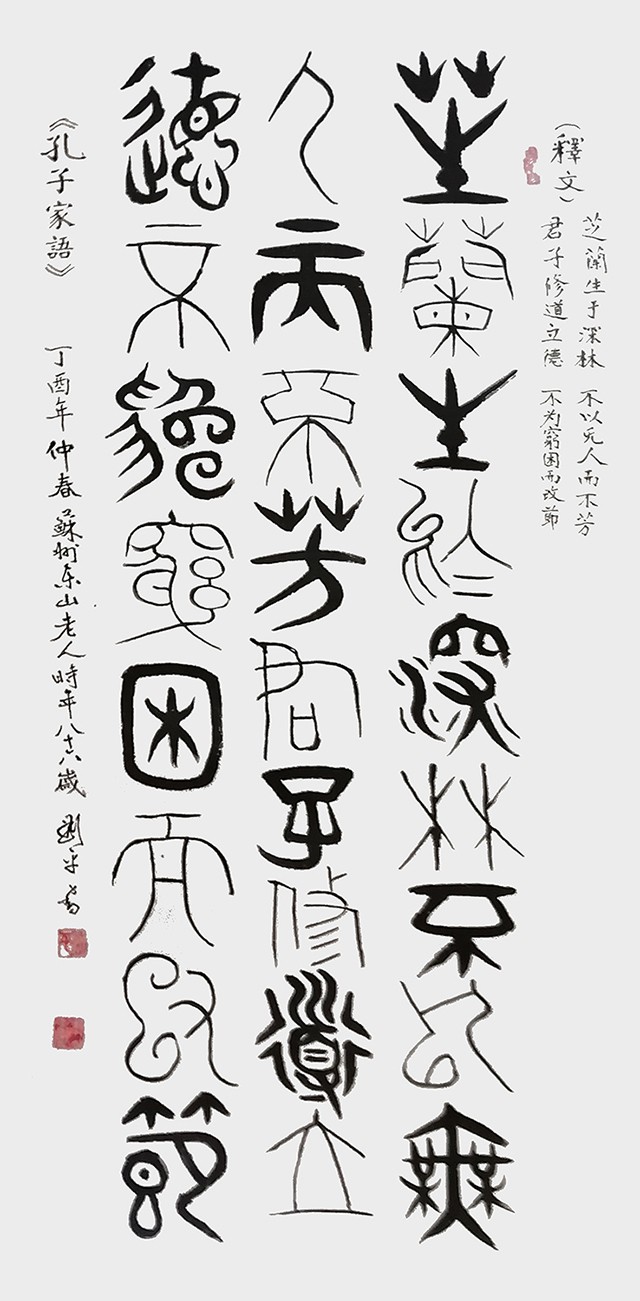 （釋文）
芝蘭生于深林 不以无人而不芳
君子修道立德 不为窮困而改節
芝蘭生於深林不以無
人而不芳君子修道立
德不為窮困而改節
《孔子家語》 丁酉年仲春蘇州山老人時年八十八歲 劉平書